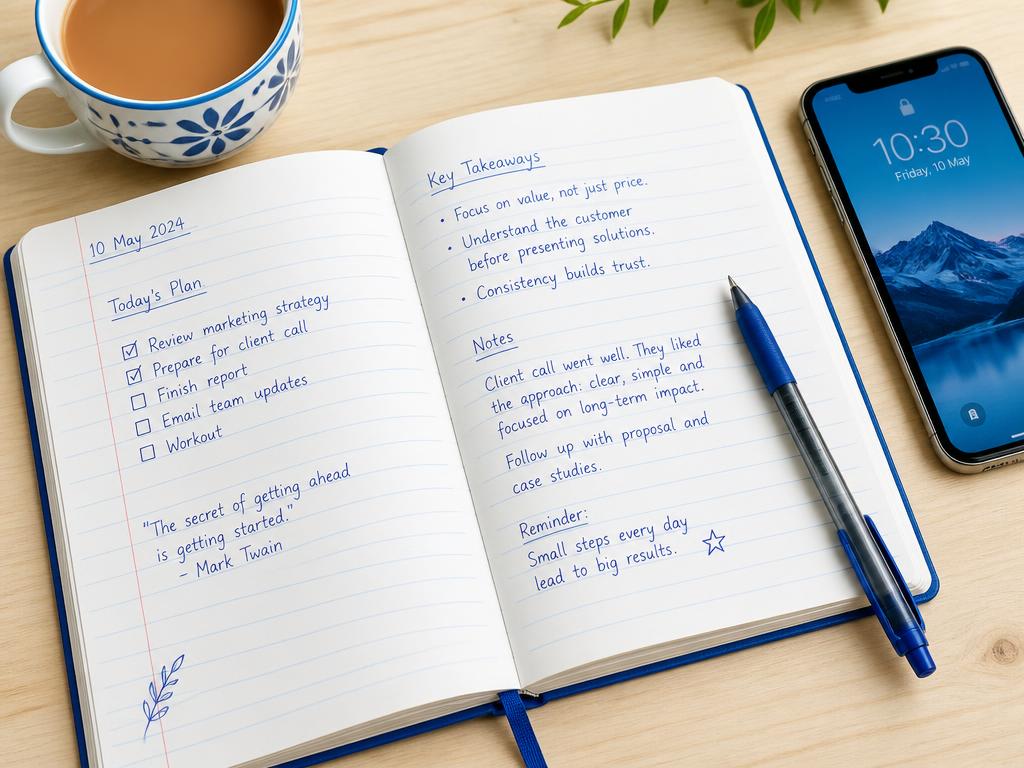 10 May 2024
Today's Plan
Review marketing strategy
Prepare for client call
Finish report
Email team updates
Workout
"The secret of getting ahead
is getting started."
– Mark Twain
Key Takeaways
• Focus on value, not just price.
• Understand the customer
before presenting solutions.
• Consistency builds trust.
Notes
Client call went well. They liked
the approach: clear, simple and
focused on long-term impact.
Follow up with proposal and
case studies.
Reminder:
Small steps every day
lead to big results.
10:30
Friday, 10 May